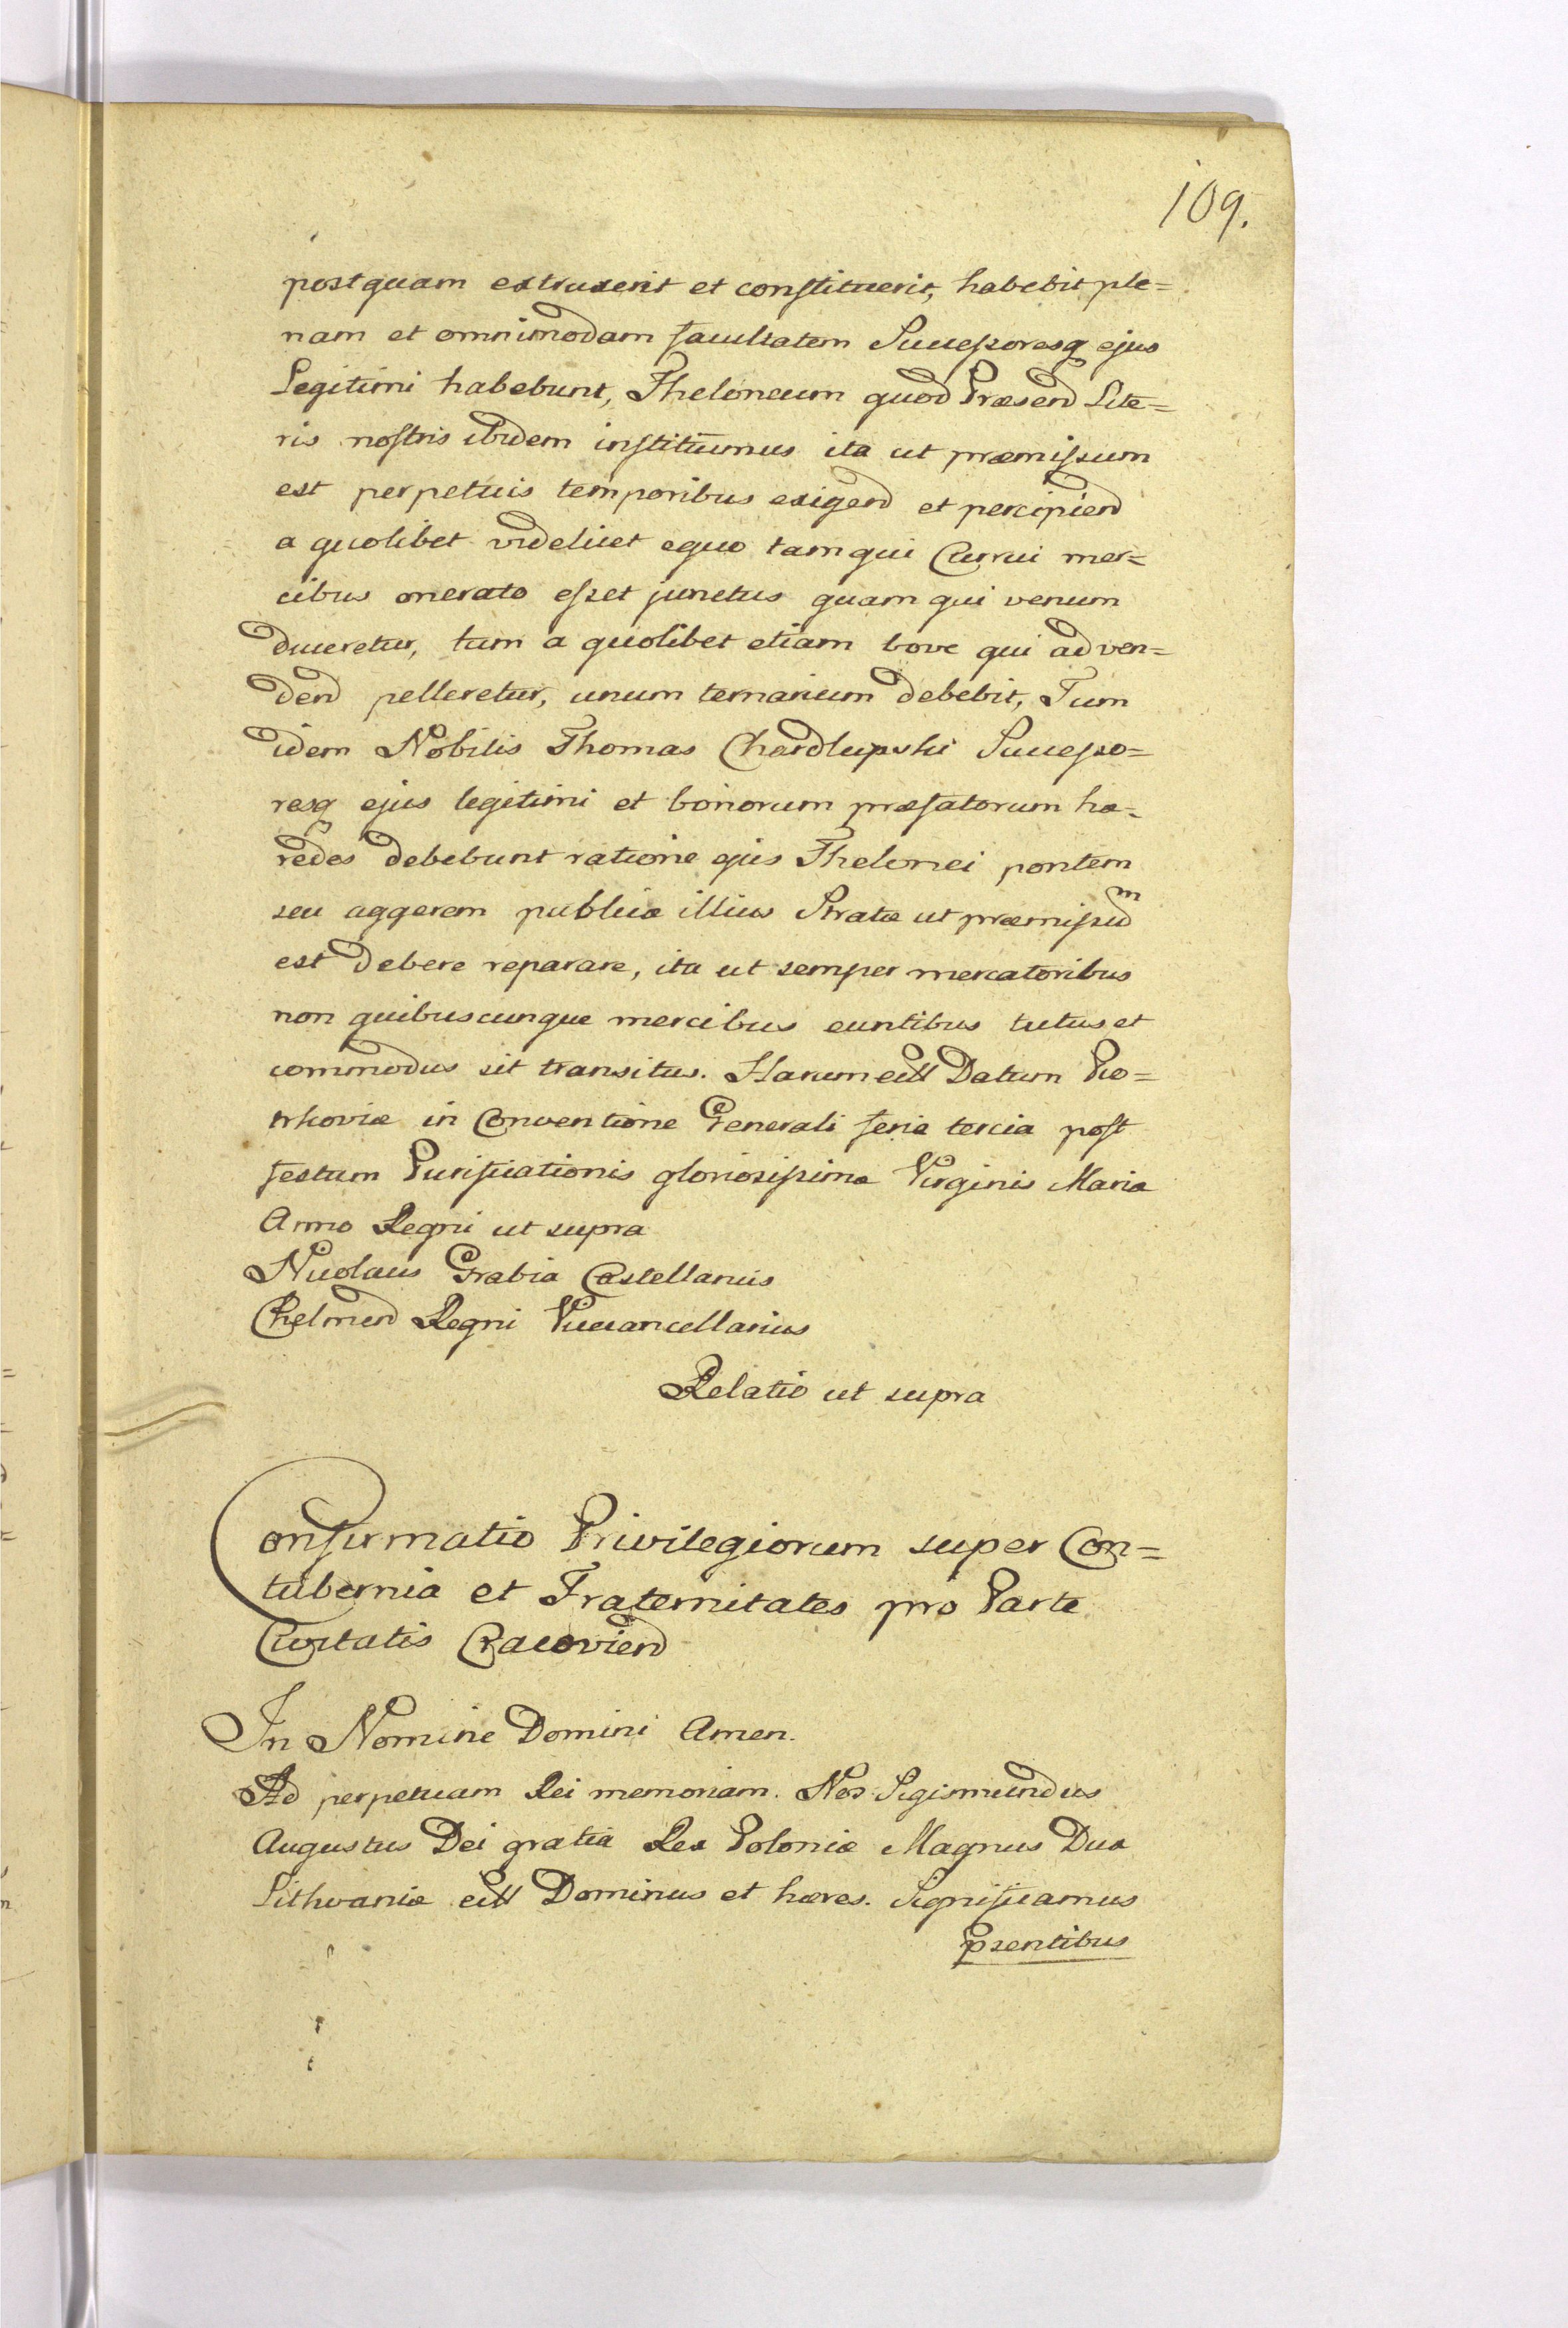 109.
postquam extruxerit et constituerit, habebit ple=
nam et omnimodam facultatem Successoresq ejus
Legitimi habebunt, Theloneum quod Præsend Lite=
ris nostris ibidem instituimus ita ut præmissum
est perpetuis temporibus exigend et percipiend
a quolibet videlicet equo tam qui Currui mer=
cibus onerato esset junctus quam qui venum
duceretur, tum a quolibet etiam bove qui ad ven=
dend pelleretur, unum ternarium debebit, Tum
idem Nobilis Thomas Chardlupski Successo=
resq ejus legitimi et bonorum præfatorum hæ=
redes debebunt ratione ejus Thelonei pontem
seu aggerem publicæ illius Stratæ ut præmissum
est debere reparare, ita ut semper mercatoribus
non quibuscunque mercibus euntibus tutus et
commodus sit transitus. Harum ett Datum Pio=
trkoviæ in Conventione Generali feria tercia post
festum Purificationis gloriosissimæ Virginis Mariæ
Anno Regni ut supra
Nicolaus Grabia Castellanus
Chelmend Regni Vicecancellarius
Relatio ut supra
Confirmatio Privilegiorum super Con=
tubernia et Fraternitates pro Parte
Civitatis Cracoviend
In Nomine Domini Amen.
Ad perpetuam Rei memoriam. Nos Sigismundus
Augustus Dei gratia Rex Poloniæ Magnus Dux
Lithvaniæ ett Dominus et hæres. Significamus
psentibus